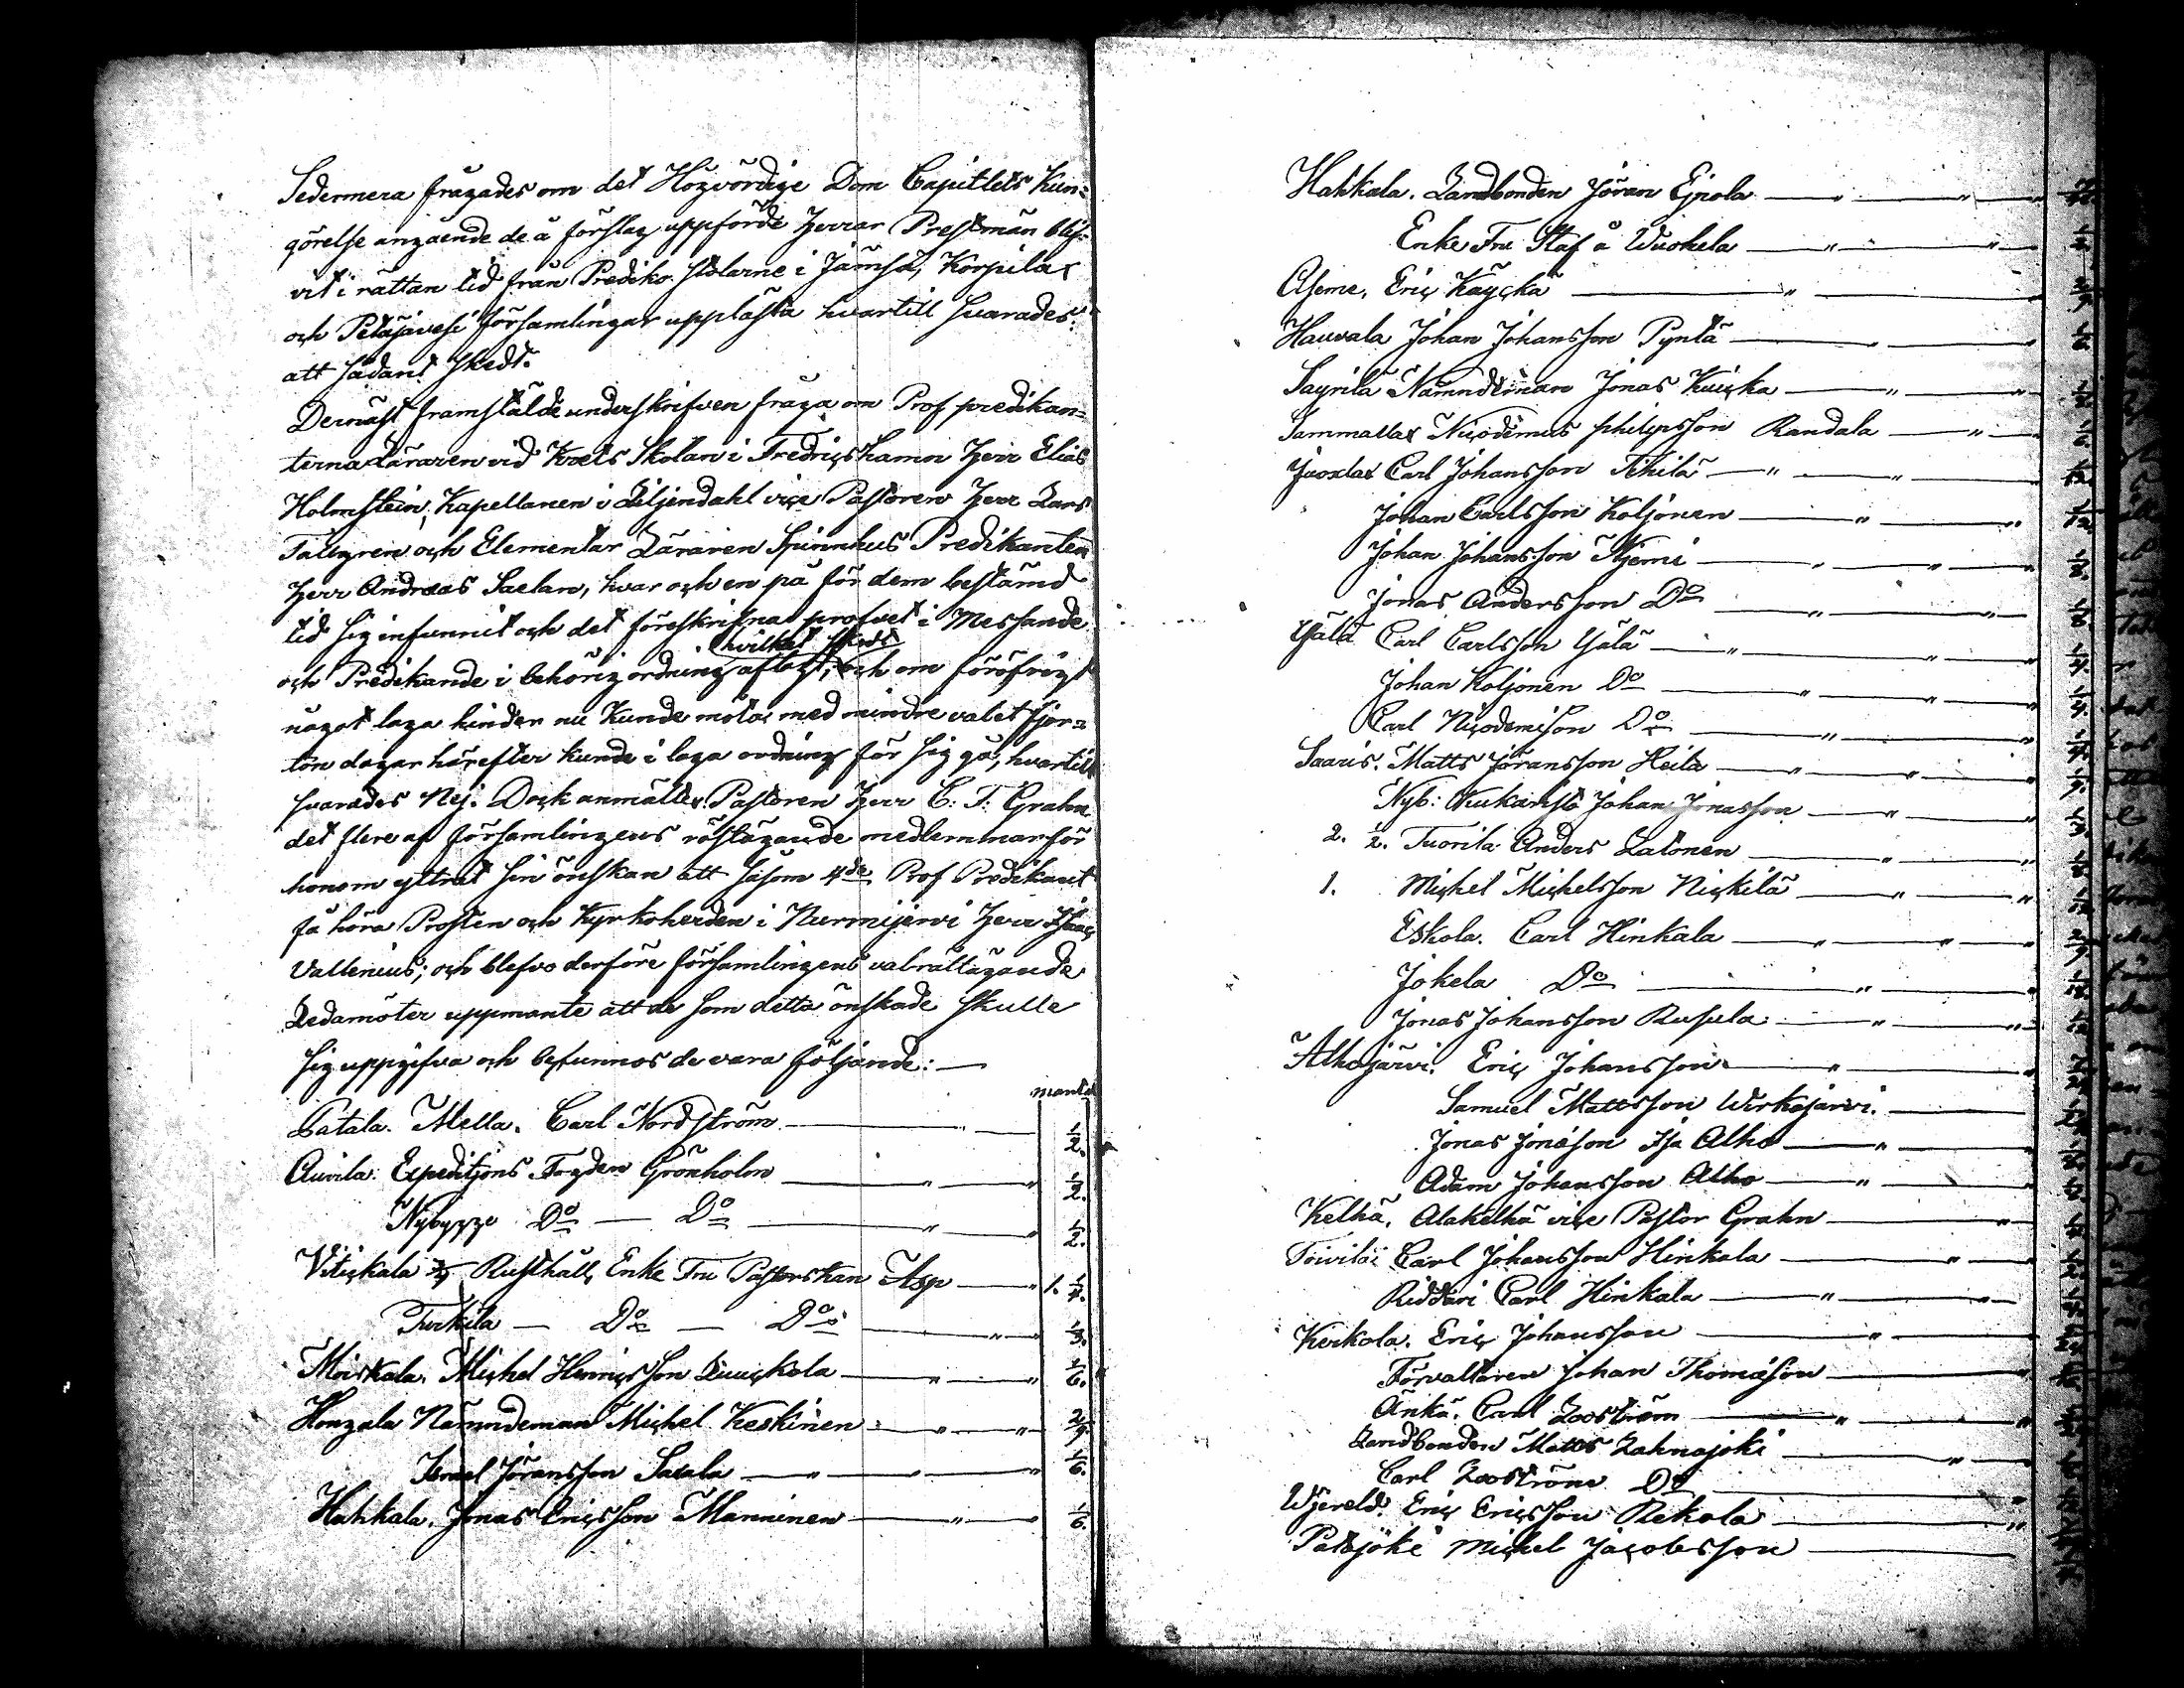 Sedermera frågades om det Högvördige Dom Capitlets Kun=
görelse angående de å förslag uppförde Herrar Prestmän blif-
vit i rättan tid från Predikostolarne i Jämsä, Korpilax
och Petäjävesi församlingar upplästa hvartill svarades:
att sådant skedt.
Dernäst framstälde underskrifven fråga om Prof predikan=
terna Läraren vid Krets Skolan i Fredricshamn Herr Elias
Holmstein, Kapellanen i Liljendahl vice Pastoren Herr Lars
Tallgren och Elementar Läraren Spinnhus Predikanten
Herr Andreas Saelan, hvar och en på för dem bestämd
tid sig infunnit och det föreskrifna profvet i Messande
hvilket skedt
och Predikande i behörig ordning aflagt, och om föröfrigt
något laga hinder nu kunde möta med mindre valet fjor=
ton dagar härefter kunde i laga ordning för sig gå, hvartill
svarades Nej. Dock anmälte Pastoren Herr C: F: Grahn
det flere af församlingens röstägande medlemmar för
honom yttrat sin önskan att såsom 4de Prof Predikant
få höra Prosten och Kyrkoherden i Nurmijervi Herr Isaac
Vallenius; och blefvo derföre församlingens valrättägande
Ledamöter uppmante att de som detta önskade skulle
sig uppgifva och befunnos de vara följande: —
mantal
Patala. Mella. Carl Nordström — " — 1/2.
Auvila: Expeditions Fogden Grönholm — " — " 1/2.
Nybygge Do — Do — " — " 1/2.
Vitickala Rusthåll, Enke Fru Pastorskan Asp — " 1. 1/4.
Turkila — Do — Do — " — 1/3.
Moiskala. Michel Henricsson Quickola — " — " 1/6.
Hongala Nämndeman Michel Keskinen — " — " 2/9.
Israel Jöransson Sacala — " — " — " 1/6.
Hahkala. Jonas Ericsson Manninen — " — " 1/6.
Hahkala. Landbonden Jöran Ejrola — " — " — "
Enke Fru Staf å Wuohela — " — " — 1/2.
Aseme, Eric Käyckä — " —
Hauvala Johan Johansson Pyntä — " — 1/6.
Säyrilä Nämndeman Jonas Kuicka — " — "
Sammallax Nicodemus philipsson Randala — " —
Juoxlax Carl Johansson Tikilä — " — " —
Johan Carlsson Koljonen — " — " 1/12.
Johan Johansson Niemi — " — " — " 1/8.
Jonas Andersson Do — " — " 1/8.
Yälä Carl Carlsson Yälä — " — " — " 1/4.
Johan Koljonen Do — " — " — " 1/4.
Carl Nicodemison Do — " — " 1/4.
Saaris. Matts Jöransson Heila — " — " — "
Nyb: Kukaristo Johan Jonasson — " — "
2. 1/2. Tuorila Anders Latonen — " — "
1. Michel Michelsson Nickilä — " — "
Eskola. Carl Hinkala — " — " — "
Jokela Do — " — "
Jonas Johansson Rusula — " — "
Alhojärvi. Eric Johansson — " — "
Samuel Mattsson Wirkajärvi. —
Jonas Jonasson Isa Alho — " —
Adam Johansson Alho — " —
Kelhä. Alakelhä vice Pastor Grahn — "
Toivila Carl Johansson Hinkala — " —
Riddari Carl Hinkala — " — " —
Kerkola. Eric Johansson — " —
Förvaltaren Johan Thomasson —
Änkä. Carl Zooström — " — "
Landbonden Matts Lahnajoki — " —
Carl Zooström Do — "
Wjerelä. Eric Ericsson Rekola — "
Patajoki Michel Jacobsson —